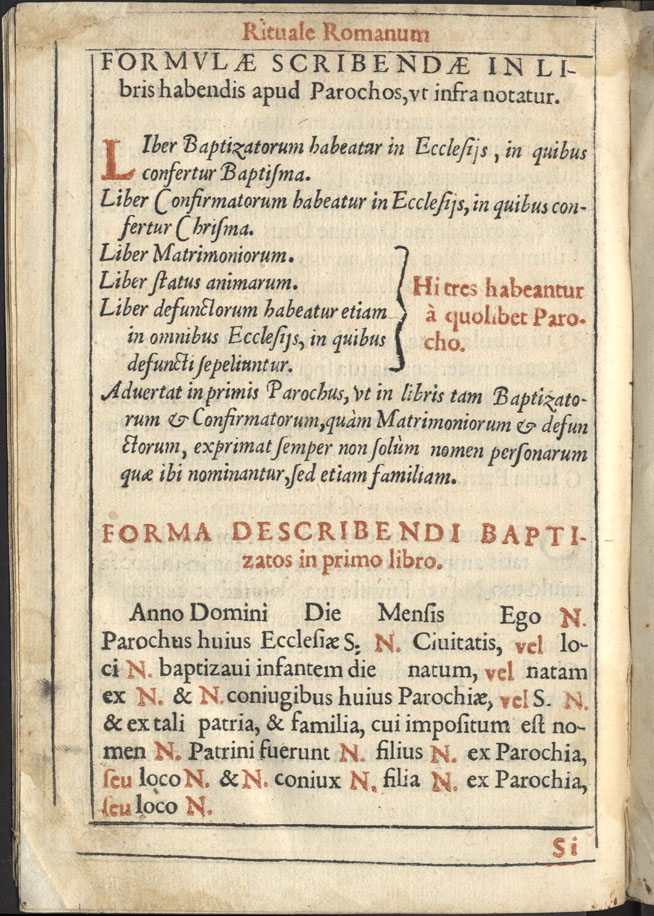 Rituale Romanum
FORMVLÆ SCRIBENDÆ IN LI-
bris habendis apud Parochos, vt infra notatur.
LIber Baptizatorum habeatur in Ecclesijs, in quibus
confertur Baptiſma.
Liber Confirmatorum habeatur in Ecclesijs, in quibus con-
fertur Chriſma.
Liber Matrimoniorum.
Liber ſtatus animarum.
Liber defunctorum habeatur etiam
in omnibus Ecclesijs, in quibus
defuncti ſepeliuntur.
Hi tres habeantur
à quolibet Paro-
cho.
Aduertat in primis Parochus, vt in libris tam Baptizato-
rum & Confirmatorum, quàm Matrimoniorum & defun
ctorum, exprimat ſemper non ſolùm nomen perſonarum
quæ ibi nominantur, ſed etiam familiam.
FORMA DESCRIBENDI BAPTI-
zatos in primo libro.
Anno Domini Die Menſis Ego N.
Parochus huius Eccleſiæ S. N. Ciuitatis, vel lo-
ci N. baptizaui infantem die natum, vel natam
ex N. & N. coniugibus huius Parochiæ, vel S. N.
& ex tali patria, & familia, cui impoſitum eſt no-
men N. Patrini fuerunt N. filius N. ex Parochia,
ſeu loco N. & N. coniux N. filia N. ex Parochia,
ſeu loco N.
Si